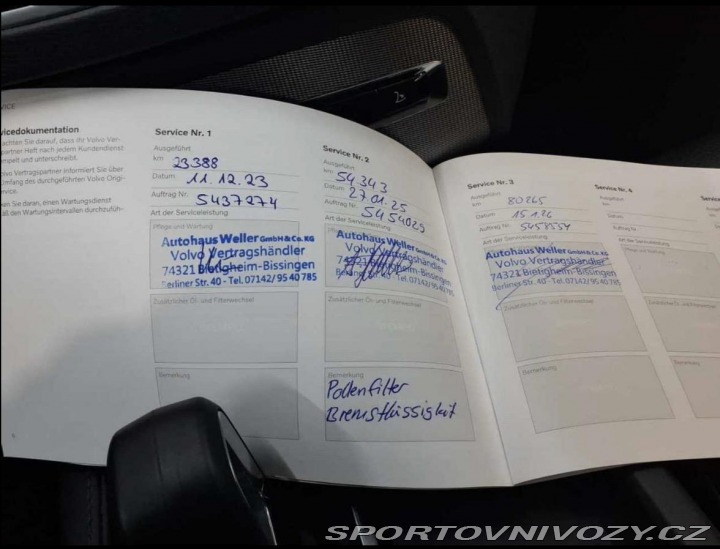 VICE
vicedokumentation
achten Sie darauf, dass Ihr Volvo Ver-
partner Heft nach jedem Kundendienst
empelt und unterschreibt.
olvo Vertragspartner informiert Sie über
mfang des durchgeführten Volvo Origi-
rvice.
en Sie daran, einen Wartungsdienst
äß den Wartungsintervallen durchzufüh-
Service Nr. 1
Ausgeführt
km 23388
Datum 11.12.23
Auftrag Nr. 5437274
Art der Serviceleistung
Pflege und Wartung
Autohaus Weller GmbH & Co. KG
Volvo Vertragshändler
74321 Bietigheim-Bissingen
Berliner Str. 40 - Tel. 07142/95 40 785
Zusätzlicher Öl- und Filterwechsel
Bemerkung
Service Nr. 2
Ausgeführt
km 54343
Datum 27.01.25
Auftrag Nr. 5454029
Art der Serviceleistung
Pflege und Wartung
Autohaus Weller GmbH & Co. KG
Volvo Vertragshändler
74321 Bietigheim-Bissingen
Tel. 07142/95 40 785
Zusätzlicher Öl- und Filterwechsel
Bemerkung
Pollenfilter
Bremsflüssigkeit
Service Nr. 3
Ausgeführt
km 80265
Datum 15.1.26
Auftrag Nr.
Art der Serviceleistung
Autohaus Weller GmbH & Co. KG
Volvo Vertragshändler
74321 Bietigheim-Bissingen
Berliner Str. 40 - Tel. 07142/95 40 785
Zusätzlicher Öl- und Filterwechsel
Bemerkung
Service Nr. 4
Ausgeführt
km
Datum
Auftrag Nr.
Art der Serviceleistung
Pflege und Wartung
Zusätzlicher Öl- und Filterwechsel
Bemerkung
SPORTOVNIVOZY.CZ